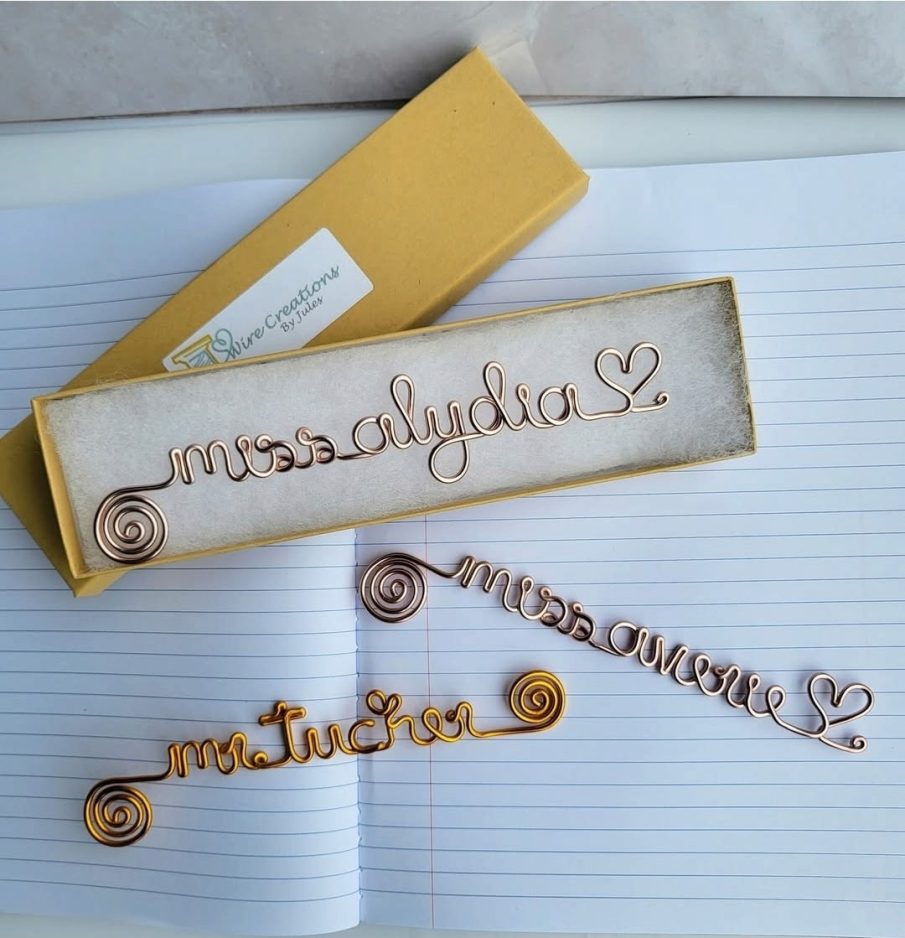 Wire Creations
By Jules
miss alydia
miss
mr. tucker